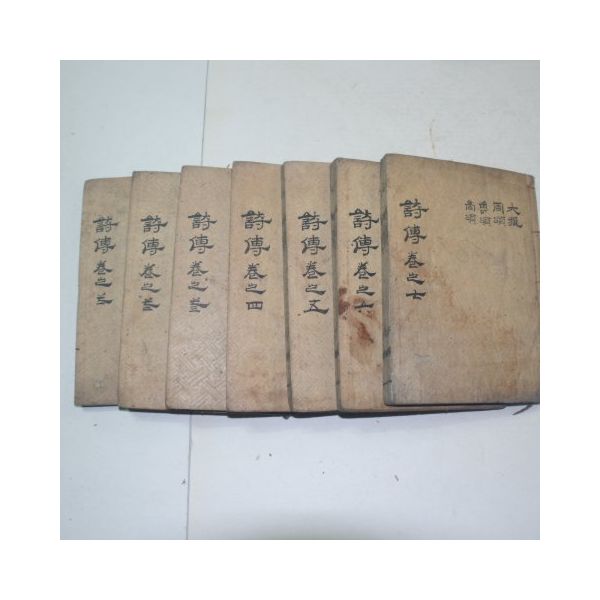 大雅
周頌
魯頌
商頌
詩傳卷之七
詩傳卷之六
詩傳卷之五
詩傳卷之四
詩傳卷之
詩傳卷之
詩傳卷之